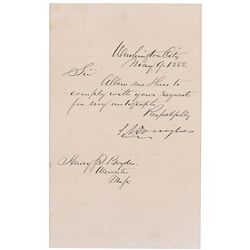 Washington City
May 9. 1858.
Sir
Allow me thus to
comply with your request
for my autograph
Respectfully
S. A. Douglas
Henry P. Boyden
Worcester
Mass.